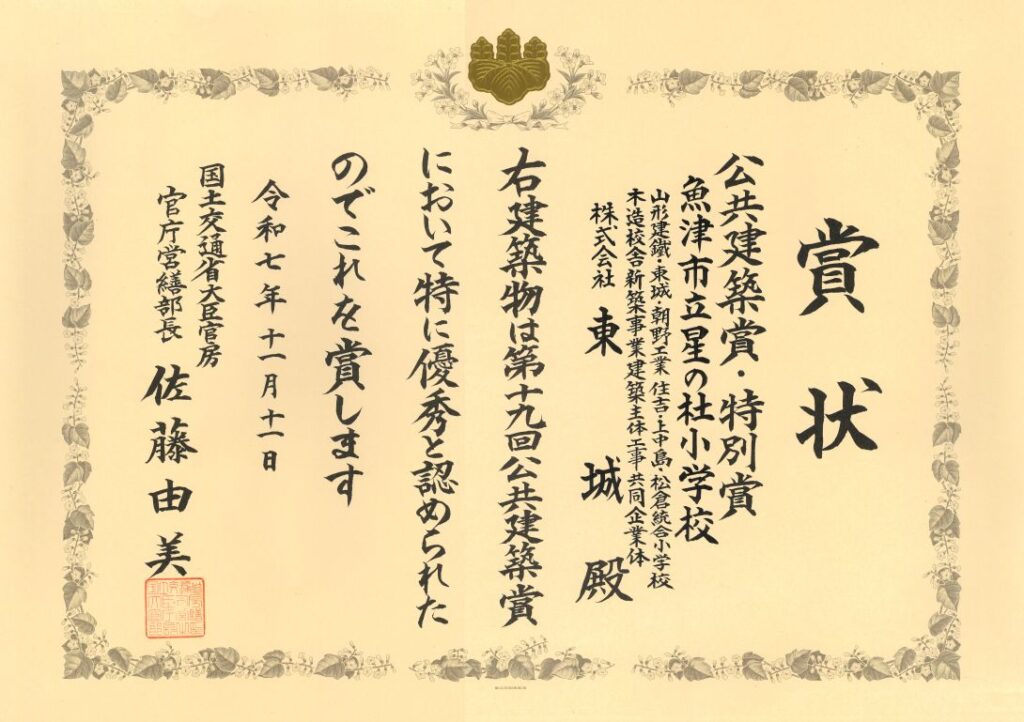 賞状
公共建築賞・特別賞
魚津市立星の杜小学校
山形建鐵・東城・朝野工業 住吉・上中島・松倉統合小学校
木造校舎新築事業建築主体工事共同企業体
株式会社 東城 殿
右建築物は第十九回公共建築賞
において特に優秀と認められた
のでこれを賞します
令和七年十一月十一日
国土交通省大臣官房
官庁営繕部長 佐藤由美